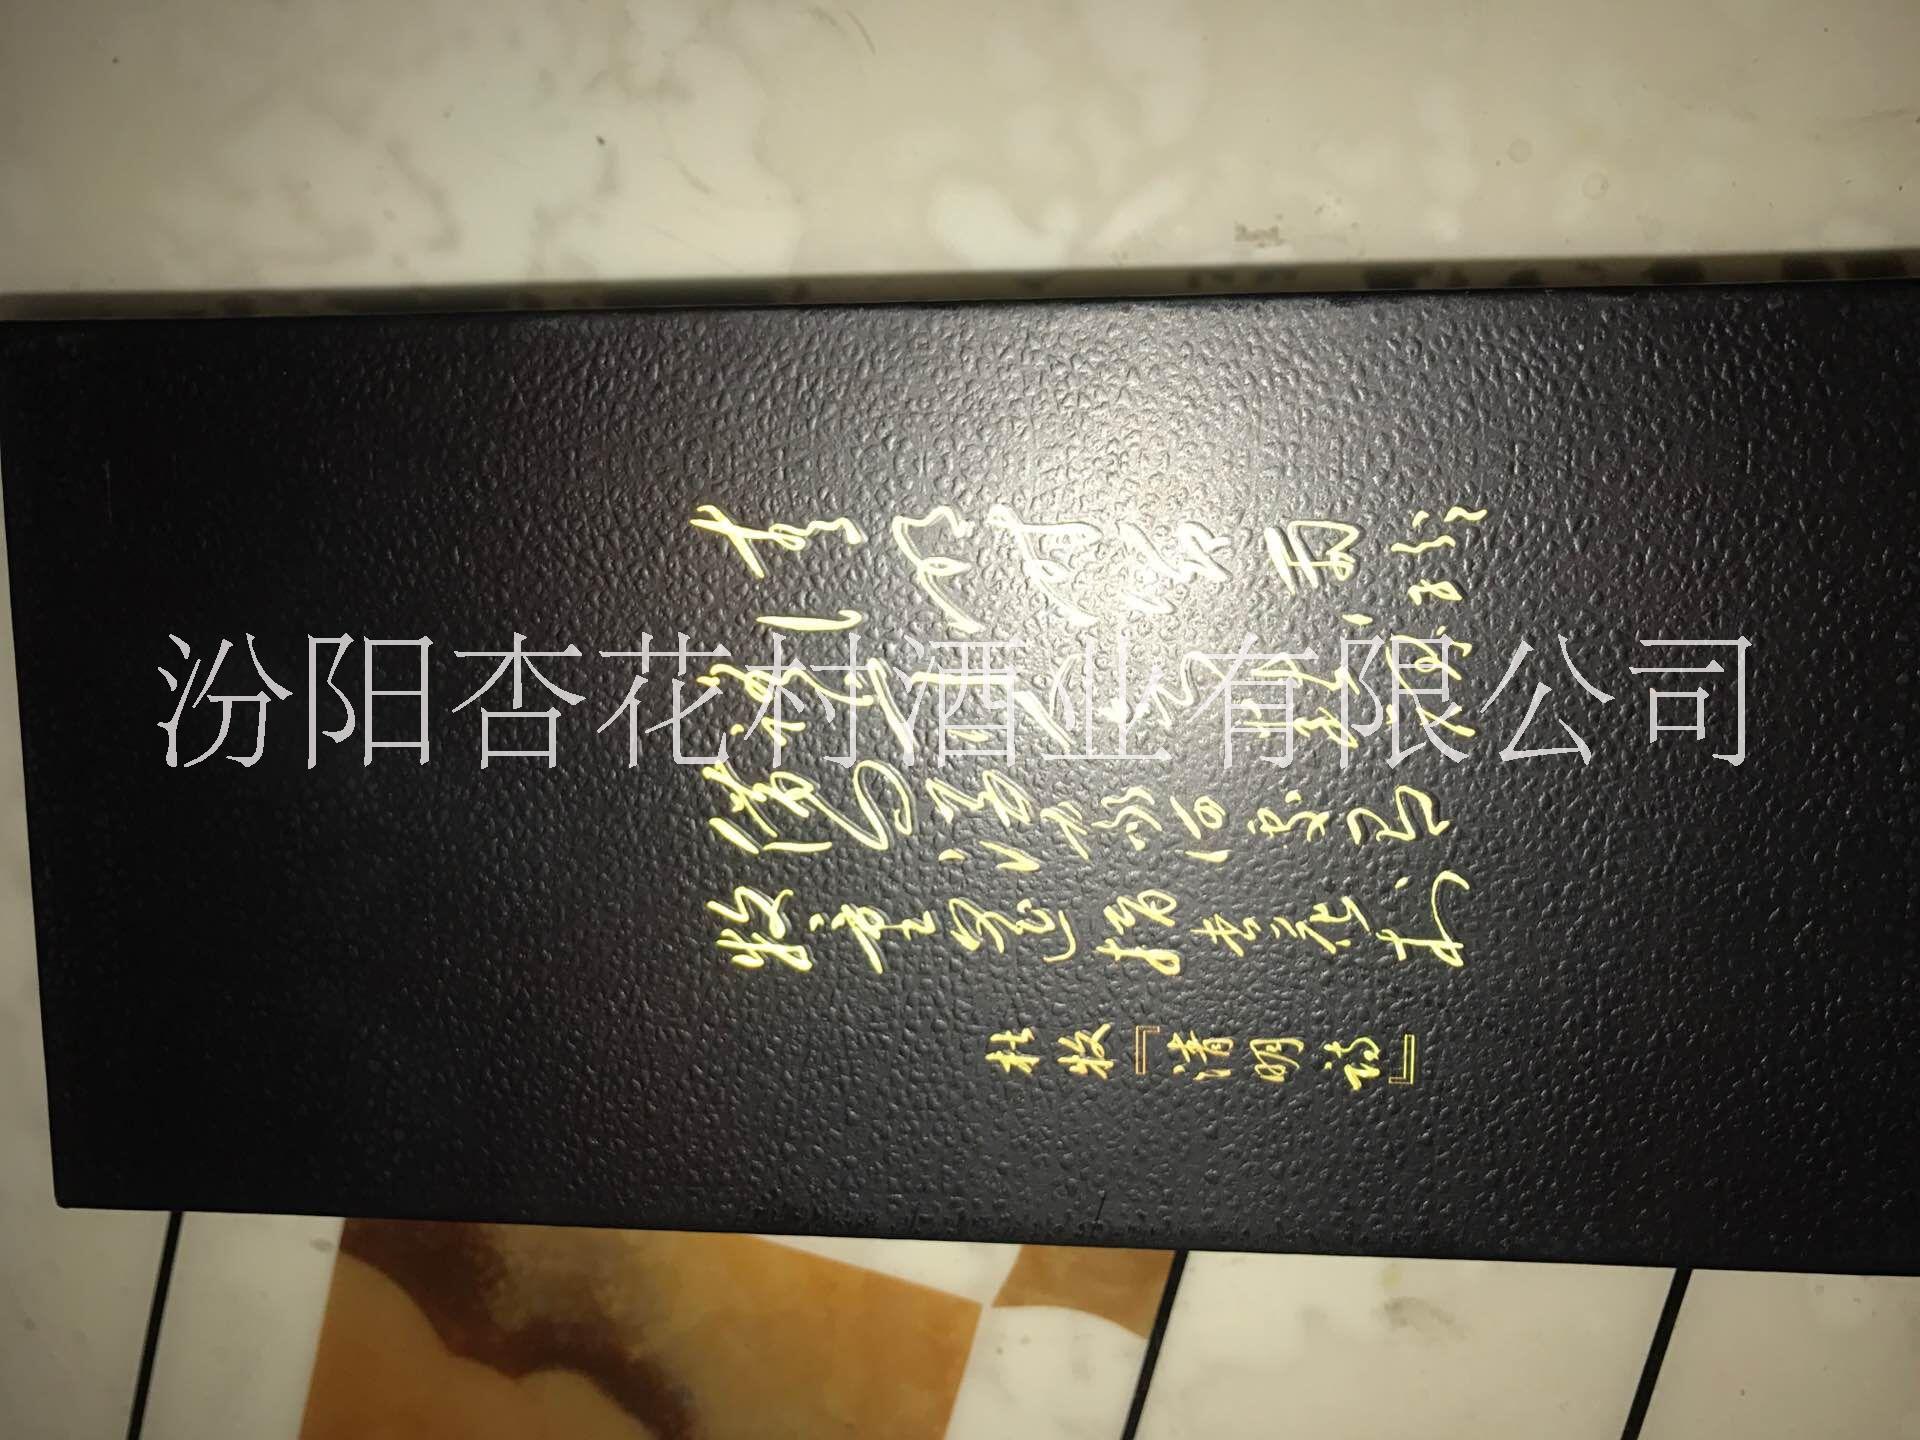 清明时节雨纷纷
路上行人欲断魂
借问酒家何处有
牧童遥指杏花村
杜牧『清明诗』
汾阳杏花村酒业有限公司